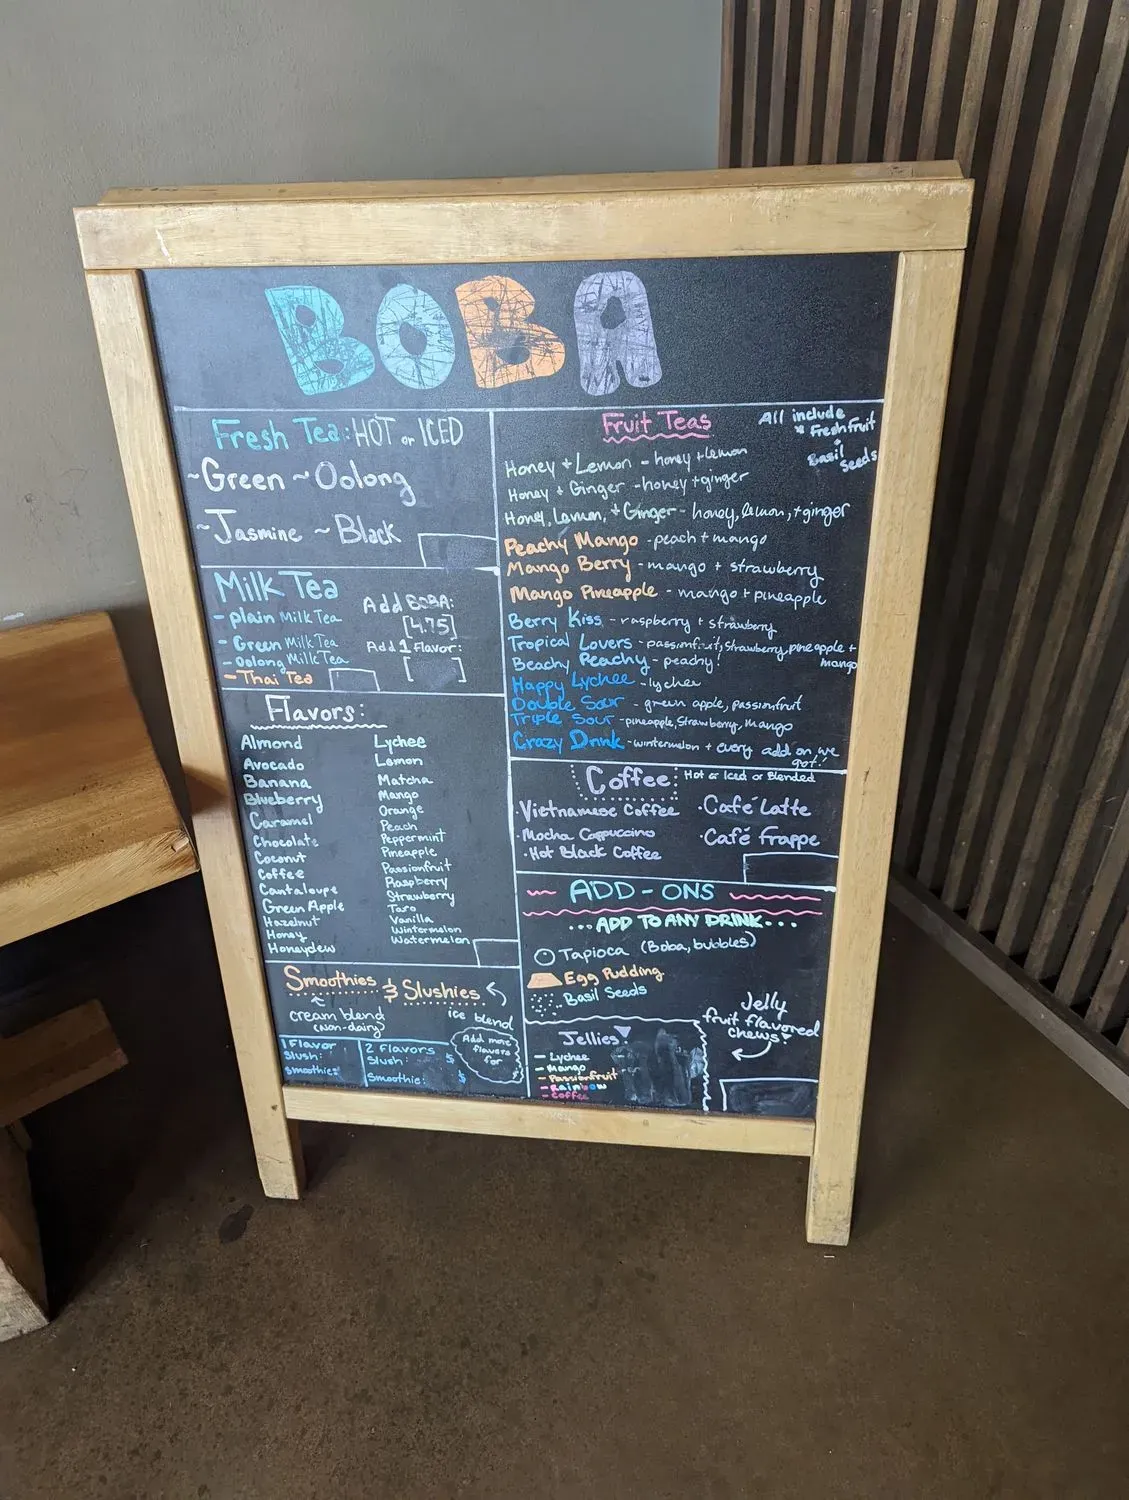 BOBA
Fresh Tea: HOT or ICED
~Green ~Oolong
~Jasmine ~Black
Milk Tea
- plain Milk Tea
- Green Milk Tea
- oolong Milk Tea
- Thai Tea
Add BOBA:
[4.75]
Add 1 flavor:
[ ]
Flavors:
Almond
Avocado
Banana
Blueberry
Caramel
Chocolate
Coconut
Coffee
Cantaloupe
Green Apple
Hazelnut
Honey
Honeydew
Lychee
Lemon
Matcha
Mango
Orange
Peach
Peppermint
Pineapple
Passionfruit
Raspberry
Strawberry
Taro
Vanilla
Wintermelon
Watermelon
Smoothies & Slushies
cream blend
(non-dairy)
ice blend
1 Flavor
Slush:
Smoothies:
2 Flavors
Slush: $
Smoothie: $
Add more
flavors
for
Fruit Teas
All include
* Fresh fruit
&
Basil
Seeds
Honey + Lemon - honey + lemon
Honey + Ginger - honey + ginger
Honey, Lemon, + Ginger - honey, lemon, + ginger
Peachy Mango - peach + mango
Mango Berry - mango + strawberry
Mango Pineapple - mango + pineapple
Berry Kiss - raspberry + strawberry
Tropical Lovers - passionfruit, strawberry, pineapple +
mango
Beachy Peachy - peachy!
Happy Lychee - lychee
Double Sour - green apple, passionfruit
Triple Sour - pineapple, strawberry, mango
Crazy Drink - wintermelon + every add on we
got!
Coffee Hot or Iced or Blended
· Vietnamese Coffee
· Mocha Cappuccino
· Hot Black Coffee
· Café Latte
· Café Frappe
ADD-ONS
...ADD TO ANY DRINK...
Tapioca (Boba, bubbles)
Egg Pudding
Basil Seeds
Jelly
fruit flavored
chews!
Jellies
- Lychee
- Mango
- Passionfruit
- Rainbow
- Coffee